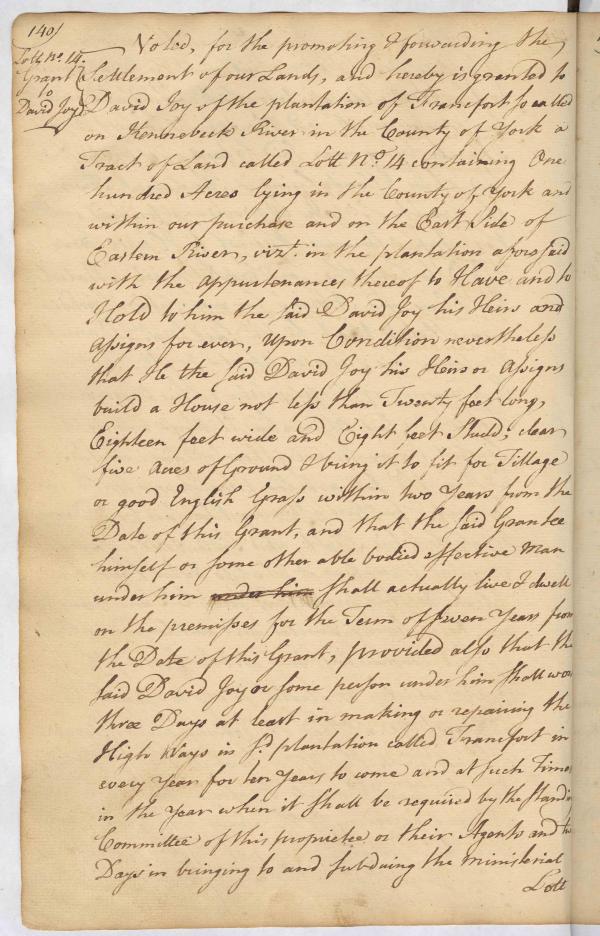 140/
Lott no. 14.
Grant
to
David Joy
Voted, for the promoting & forwarding the
Settlement of our Lands, and hereby is granted to
David Joy of the plantation of Francfort so called
on Kennebeck River in the County of York a
Tract of Land called Lott No. 14 containing One
hundred Acres lying in the County of York and
within our purchase and on the East Side of
Eastern River, vizt. in the plantation aforesaid
with the appurtenances thereof to Have and to
Hold to him the said David Joy his Heirs and
Assigns for ever, Upon Condition nevertheless
that He the said David Joy his Heirs or Assigns
build a House not less than Twenty feet long,
Eighteen feet wide and Eight feet Studd; clear
five Acres of Ground & bring it to fit for Tillage
or good English Grass within two Years from the
Date of this Grant, and that the said Grantee
himself or some other able bodied effective Man
under him under him shall actually live & dwell
on the premisses for the Term of seven Years from
the Date of this Grant, provided also that the
said David Joy or some person under him shall work
three Days at least in making or repairing the
High Ways in sd. plantation called Francfort in
every Year for ten Years to come and at such Times
in the Year when it shall be required by the Standing
Committee of this propriete or their Agents and two
Days in bringing to and subduing the Ministerial
Lott